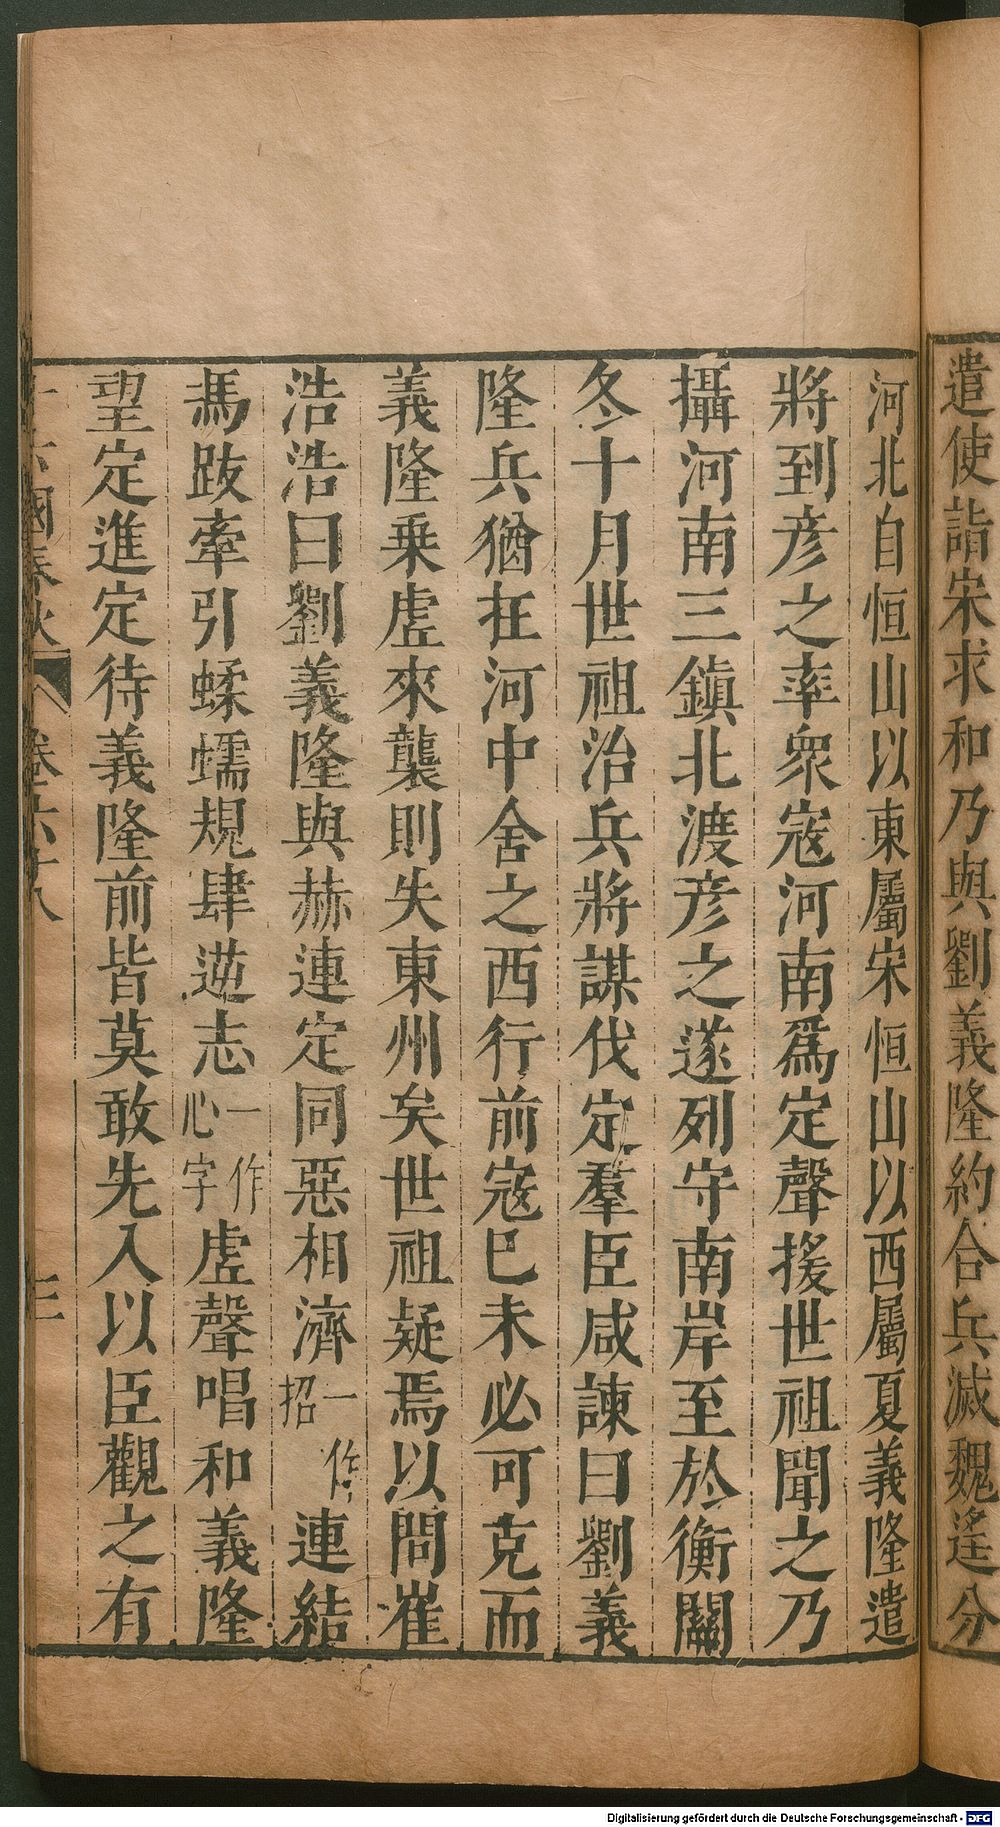 遣使詣宋求和乃與劉義隆約合兵滅魏遙分
河北自恒山以東屬宋恒山以西屬夏義隆遣
將到彦之率衆寇河南爲定聲援世祖聞之乃
攝河南三鎮北渡彦之遂列守南岸至於衡關
冬十月世祖治兵將謀伐定羣臣咸諫曰劉義
隆兵猶在河中舍之西行前寇巳未必可克而
義隆乗虚來襲則失東州矣世祖疑焉以問崔
浩浩曰劉義隆與赫連定同惡相濟一作招連結
馮跋牽引蠕蠕規肆逆志一作心字虚聲唱和義隆
望定進定待義隆前皆莫敢先入以臣觀之有
十六國春秋 卷六十八 三
Digitalisierung gefördert durch die Deutsche Forschungsgemeinschaft - DFG